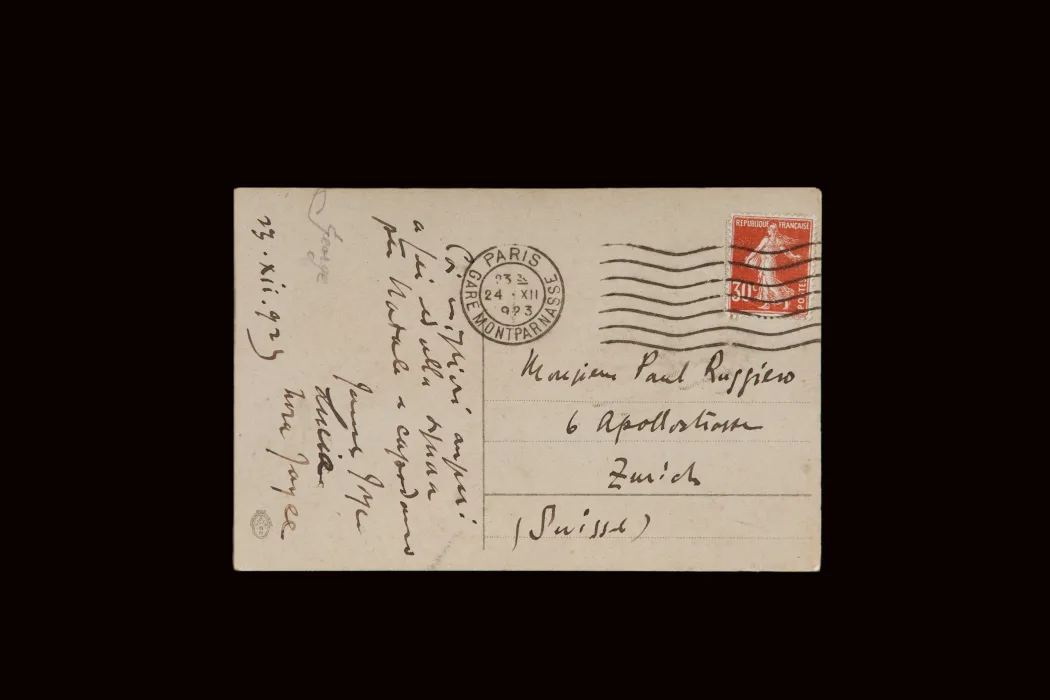 Coi migliori auguri
a Lei ed alla signora
per Natale e capodanno
James Joyce
Lucia
Nora Joyce
George
23.xii.923
PARIS
GARE MONTPARNASSE
24 · XII
923
REPUBLIQUE FRANÇAISE
30c
POSTES
Monsieur Paul Ruggiero
6 Apollostrasse
Zurich
(Suisse)